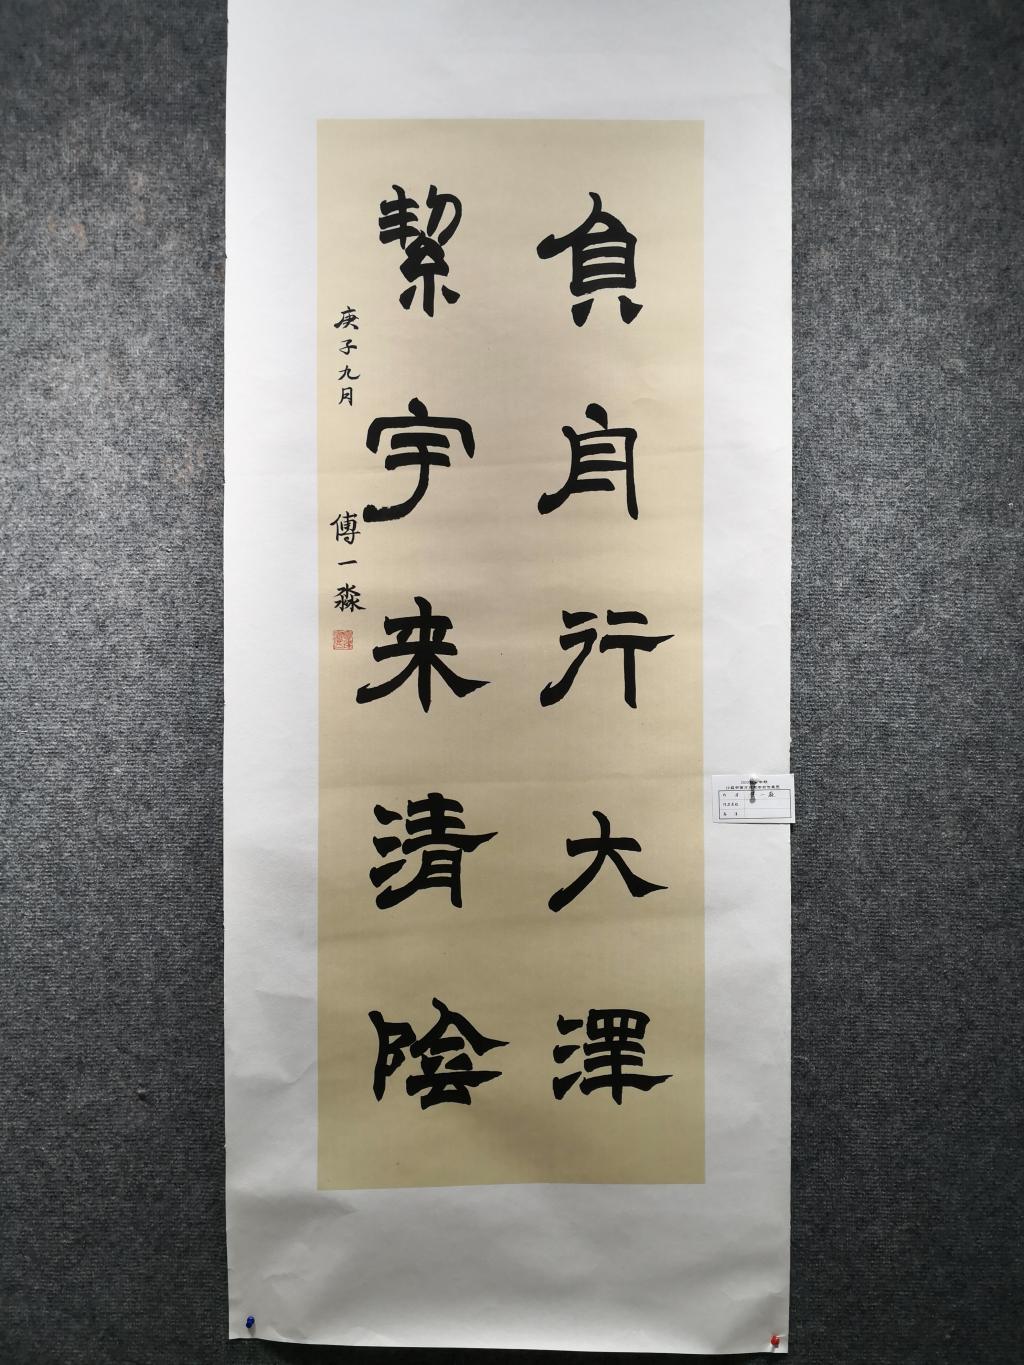 負月行大澤
絜宇来清陰
庚子九月
傅一淼